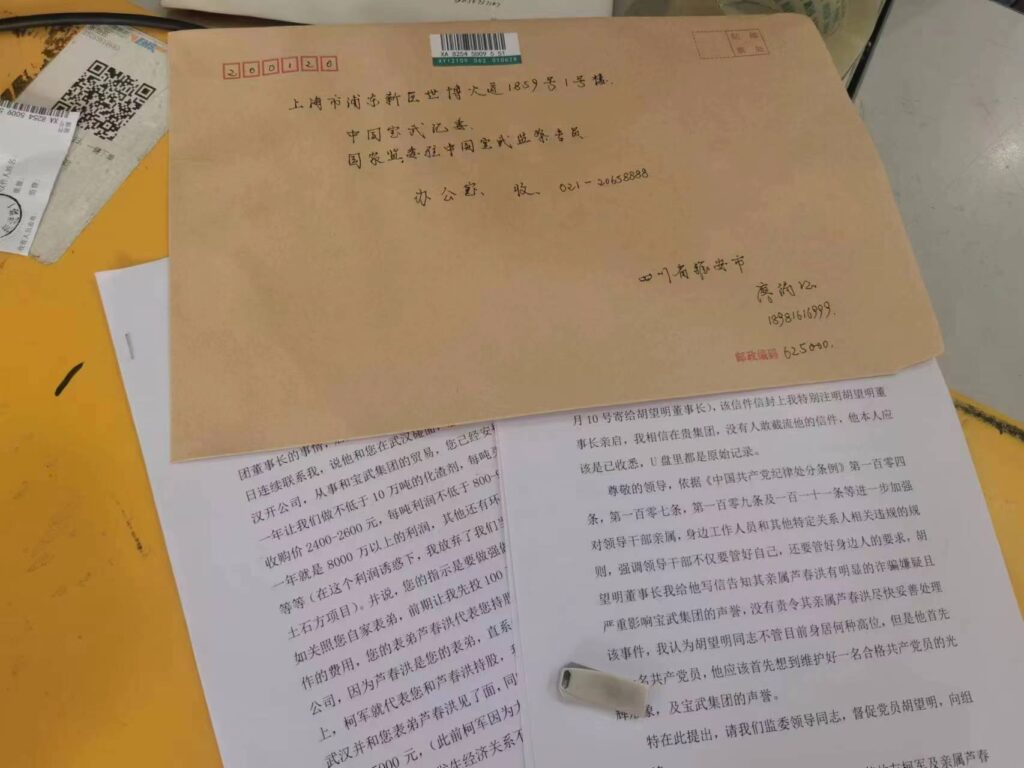 200120
XA 8254 5009 5 51
上海市浦东新区世博大道1859号1号楼.
中国宝武纪委.
国家监委驻中国宝武监察专员
办公室、收、021-20658888
四川省雅安市
18981616999.
邮政编码 625000.
日连续联系我,说他和您在武汉碰面,您已经安
汉开公司,从事和宝武集团的贸易,每吨
一年让我们做不低于10万吨的化渣剂,每吨
收购价2400-2600元,每吨利润不低于800
一年就是8000万以上的利润,其他还有环
等等(在这个利润诱惑下,我放弃了我们
土石方项目)。并说,您的指示是要做强
如关照您自家表弟,前期让我先投100
作的费用,您的表弟芦春洪代表您持
公司,因为芦春洪是您的表弟,直系
上,柯军就代表您和芦春洪持股,
武汉并和您表弟芦春洪见了面,同
5000元,(此前柯军因为
月10号寄给胡望明董事长),该信件信封上我特别注明胡望明董
事长亲启,我相信在贵集团,没有人敢截流他的信件,他本人应
该是已收悉,U盘里都是原始记录。
尊敬的领导,依据《中国共产党纪律处分条例》第一百零四
条,第一百零七条,第一百零九条及一百一十一条等进一步加强
对领导干部亲属,身边工作人员和其他特定关系人相关违规的规
则,强调领导干部不仅要管好自己,还要管好身边人的要求,胡
望明董事长我给他写信告知其亲属芦春洪有明显的诈骗嫌疑且
严重影响宝武集团的声誉,没有责令其亲属芦春洪尽快妥善处理
该事件,我认为胡望明同志不管目前身居何种高位,但是他首先
名共产党员,他应该首先想到维护好一名合格共产党员的光
象,及宝武集团的声誉。
特在此提出,请我们监委领导同志,督促党员胡望明,向组
柯军及亲属芦春